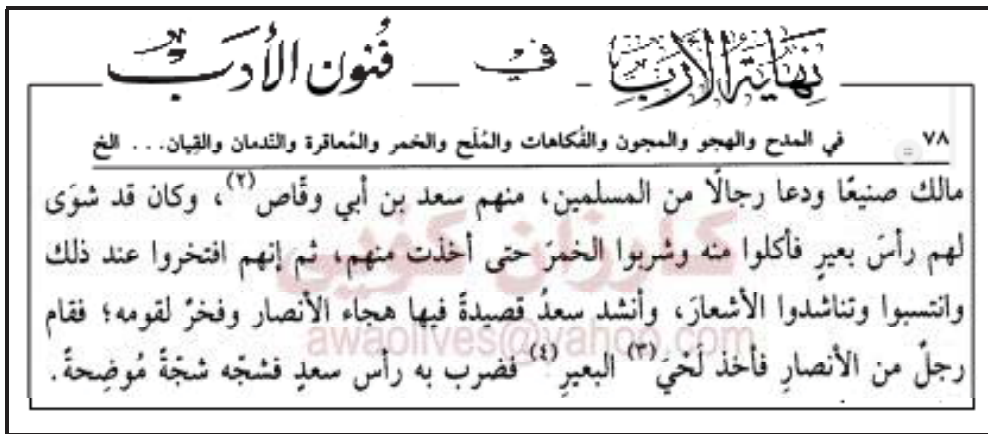 نِهَايَةُ الأَرَبِ في فُنُونِ الأَدَبِ
٧٨ في المدح والهجو والمجون والفُكاهات والمُلَح والخمر والمُعاقرة والنَدمان والقِيان... الخ
مالك صنيعًا ودعا رجالًا من المسلمين، منهم سعد بن أبي وقّاص(٢)، وكان قد شوَى
لهم رأسَ بعيرٍ فأكلوا منه وشربوا الخمرَ حتى أخذت منهم، ثم إنهم افتخروا عند ذلك
كاروان كؤيى
وانتسبوا وتناشدوا الأشعارَ، وأنشد سعدُ قصيدةً فيها هجاء الأنصار وفخرٌ لقومه؛ فقام
awaolives@yahoo.com
رجلٌ من الأنصارِ فأخذ لَحْيَ(٣) البعيرِ(٤) فضرب به رأس سعدٍ فشجّه شجّةً مُوضِحةً.